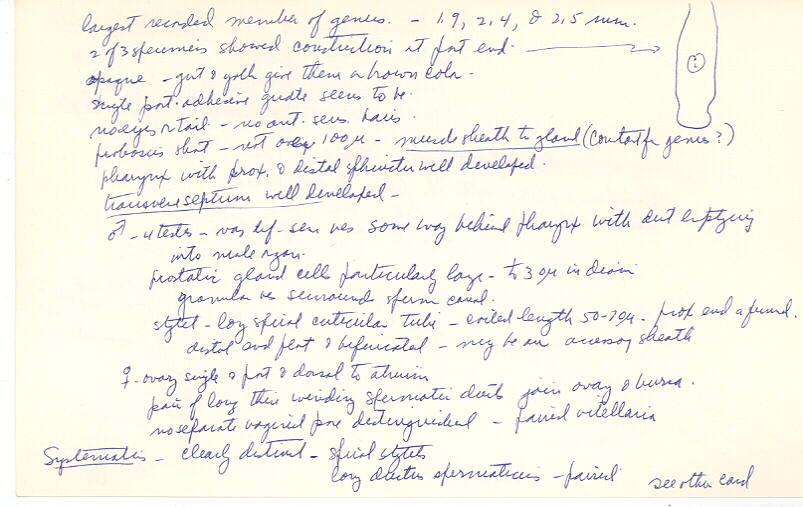 largest recorded member of genus. - 1.9, 2.4, & 2.5 mm.
2 of 3 specimens showed constriction at post end.
opaque - gut & yolk give them a brown color.
single post. adhesive girdle seems to be.
no eyes or tail - no ant. sens. hairs.
proboscis short - not over 100 µ - muscle sheath to gland (constant for genus?)
pharynx with prox. & distal sphincter well developed.
transverse septum well developed -
♂ - 4 testes - vas def - sem ves some way behind pharynx with duct emptying
into male organ.
prostatic gland cells particularly large - to 30µ in diam
granular ves surrounds sperm canal.
stylet - long spiral cuticular tube - coiled length 50-70µ - prox end a funnel.
distal end flat & bifurcated - may be an accessory sheath
♀ - ovary single & post & dorsal to atrium
pair of long thin winding spermatic ducts join ovary & bursa.
no separate vaginal pore distinguished - paired vitellaria
Systematics - clearly distinct - spiral stylets
long ductus spermaticus - paired
see other card